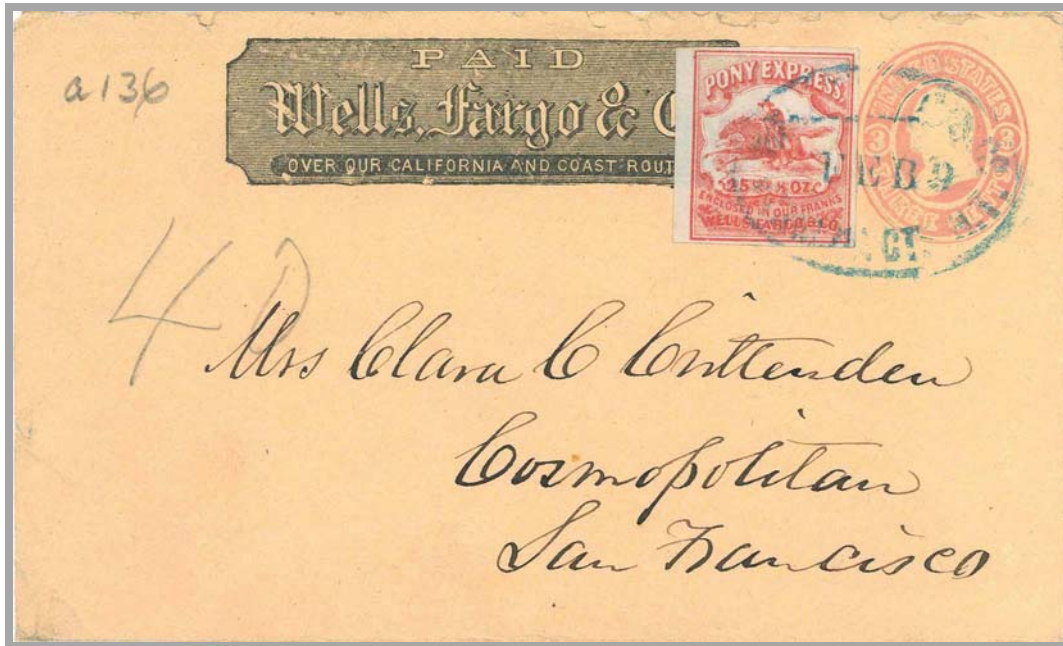 a136
PAID
Wells, Fargo &
OVER OUR CALIFORNIA AND COAST ROUT
PONY EXPRESS
25 ½ OZ
ENCLOSED IN OUR FRANKS
WELLS FARGO & CO.
UNITED STATES
3 3
THREE
FEB 9
40
Mrs Clara C Crittenden
Cosmopolitan
San Francisco